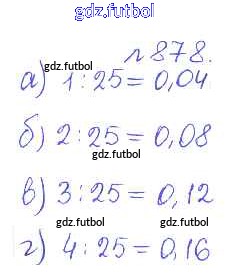 gdz.futbol
№878.
gdz.futbol
а) 1 : 25 = 0,04
б) 2 : 25 = 0,08
gdz.futbol
в) 3 : 25 = 0,12
gdz.futbol gdz.futbol
г) 4 : 25 = 0,16